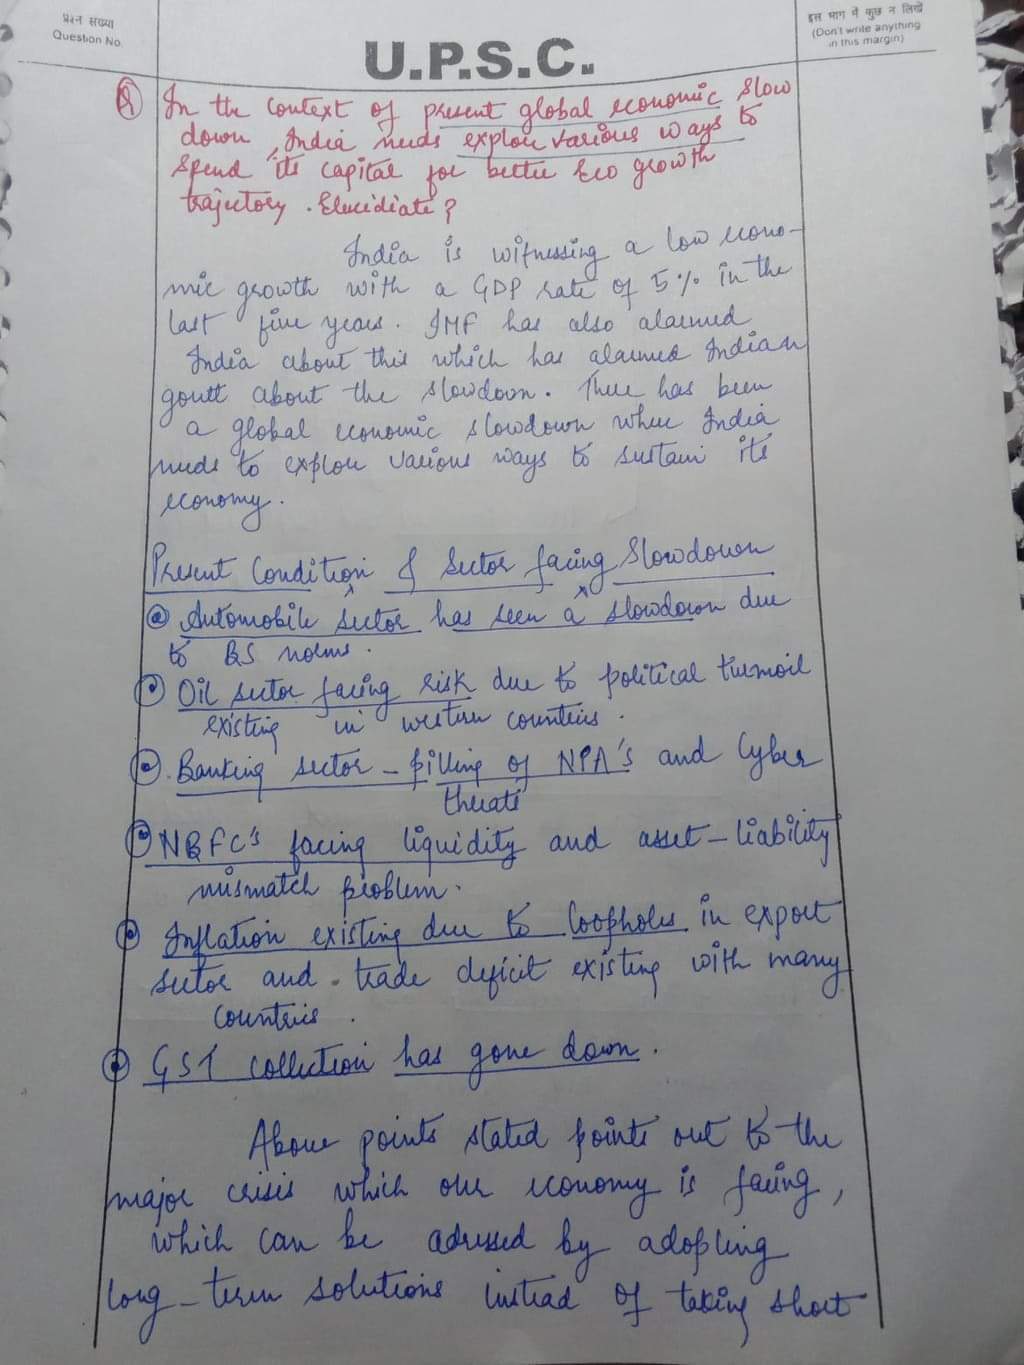 प्रश्न संख्या
Question No.
इस भाग में कुछ न लिखें
(Don't write anything
in this margin)
U.P.S.C.
Q In the context of present global economic slow
down, India needs explore various ways to
spend its capital for better Eco growth
trajectory. Elucidiate?
India is witnessing a low econo-
mic growth with a GDP rate of 5% in the
last five years. IMF has also alarmed
India about this which has alarmed Indian
govtt about the slowdown. There has been
a global economic slowdown where India
needs to explore various ways to sustain its
economy.
Present Condition & Sector facing Slowdown
Automobile sector has seen a slowdown due
to BS norms.
Oil sector facing risk due to political turmoil
existing in western countries.
Banking sector - pilling of NPA's and Cyber
threats
NBFC's facing liquidity and asset-liability
mismatch problem.
Inflation existing due to loopholes in export
sector and trade deficit existing with many
countries.
GST collection has gone down.
Above points stated points out to the
major crisis which our economy is facing,
which can be adressed by adopting
long-term solutions instead of taking short